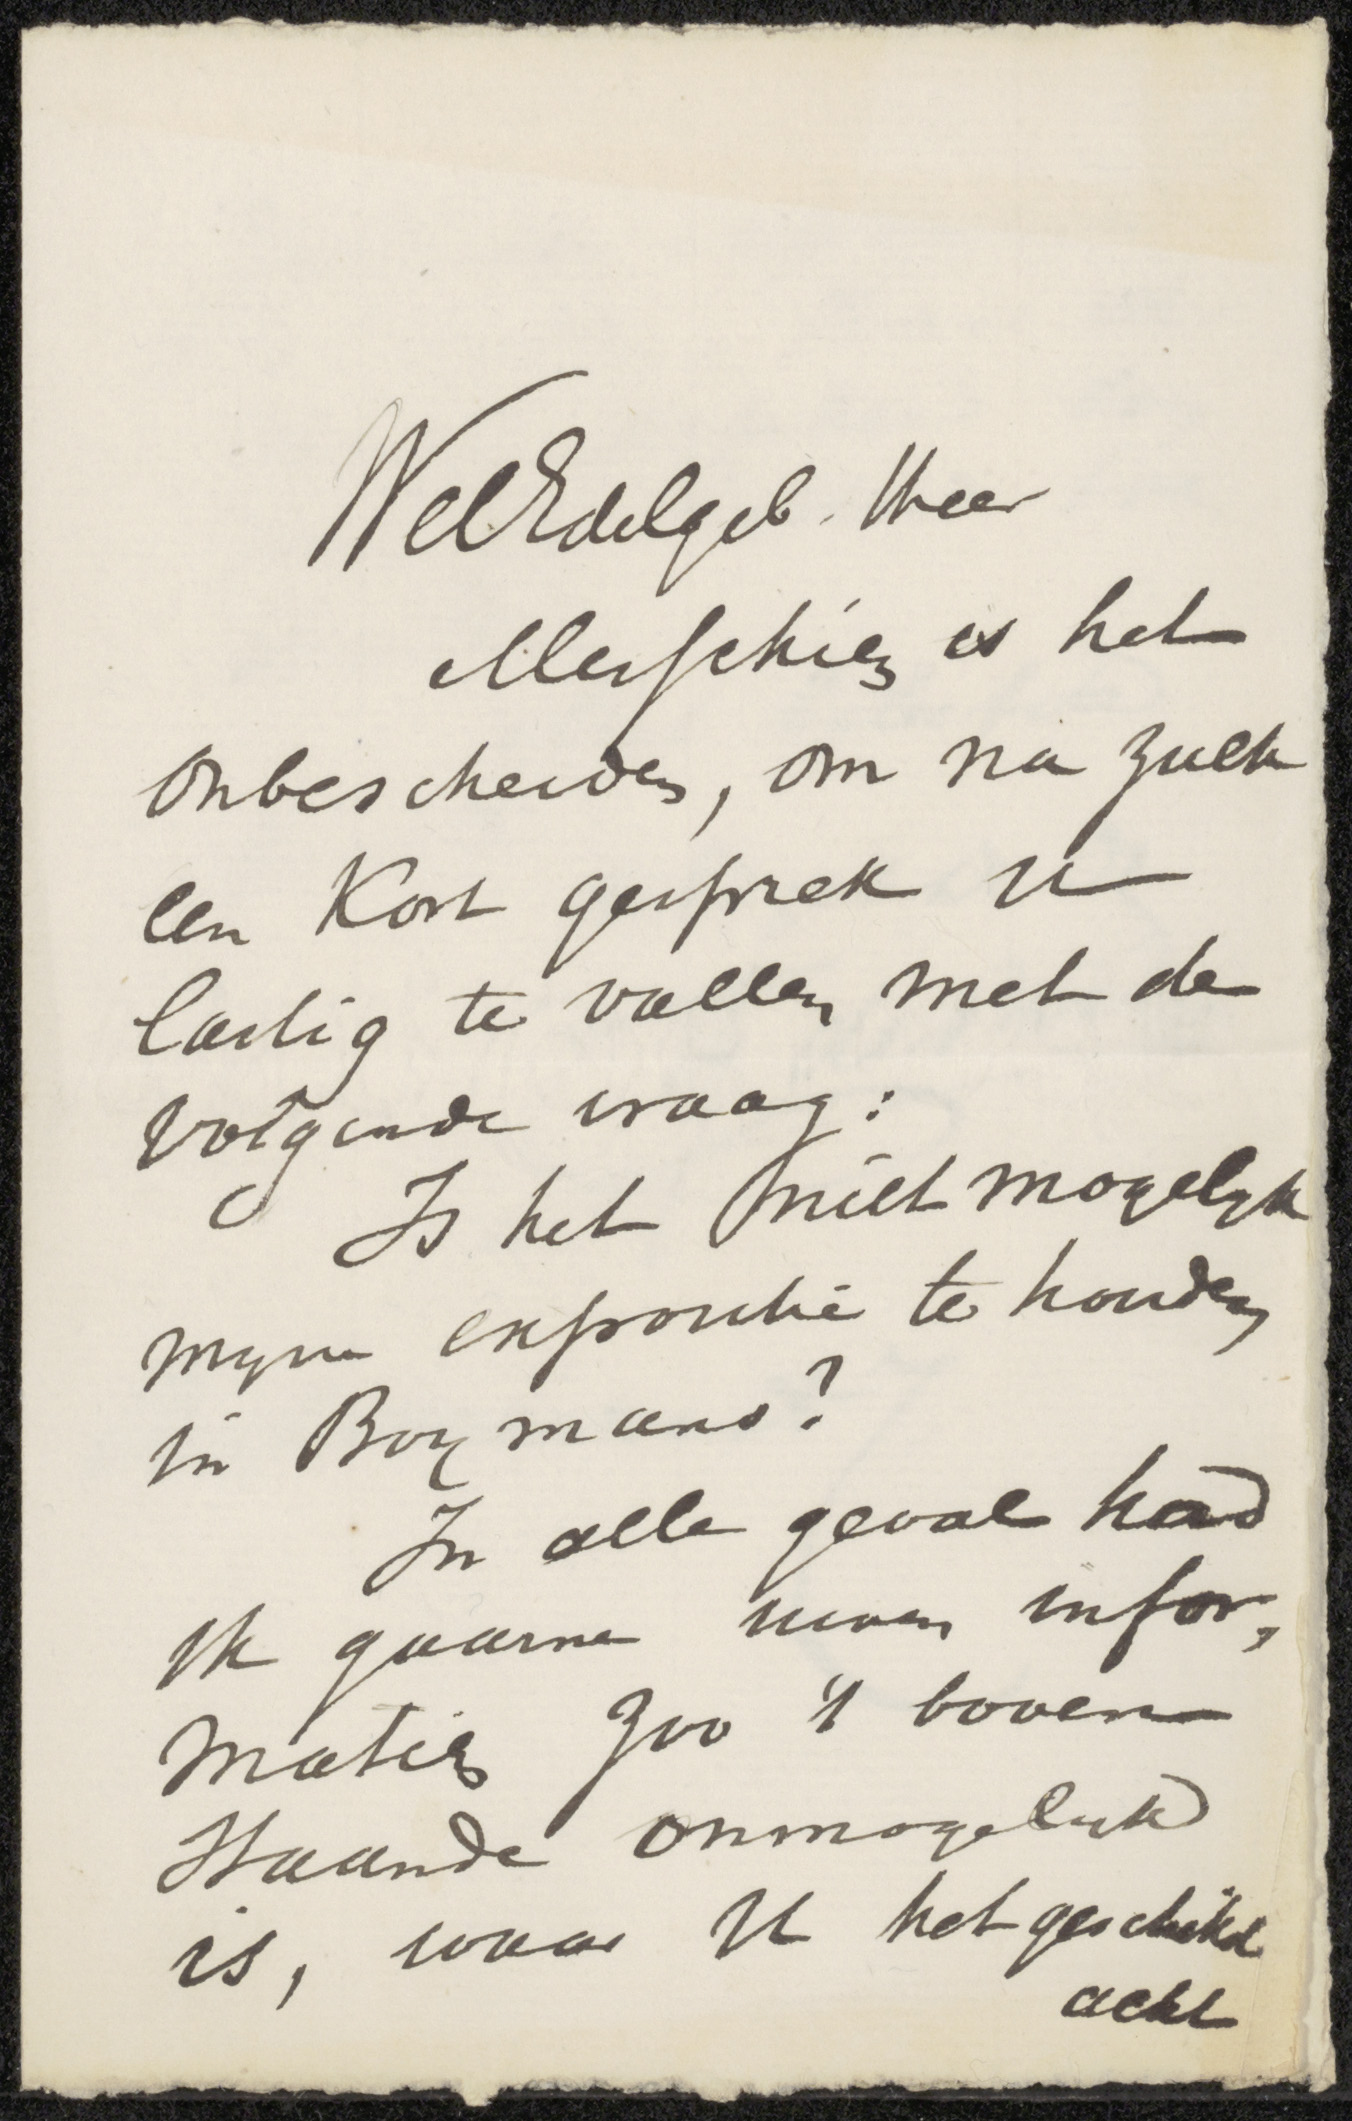 WelEdelgeb. Heer
Misschien is het
onbescheiden, om na zulk
een kort gesprek U
lastig te vallen met de
volgende vraag:
Is het niet mogelyk
myne expositie te houden
in Boymans?
In alle geval had
ik gaarne uwen infor,
matien zoo 't boven
staande onmogelyk
is, waar U het geschikt
acht